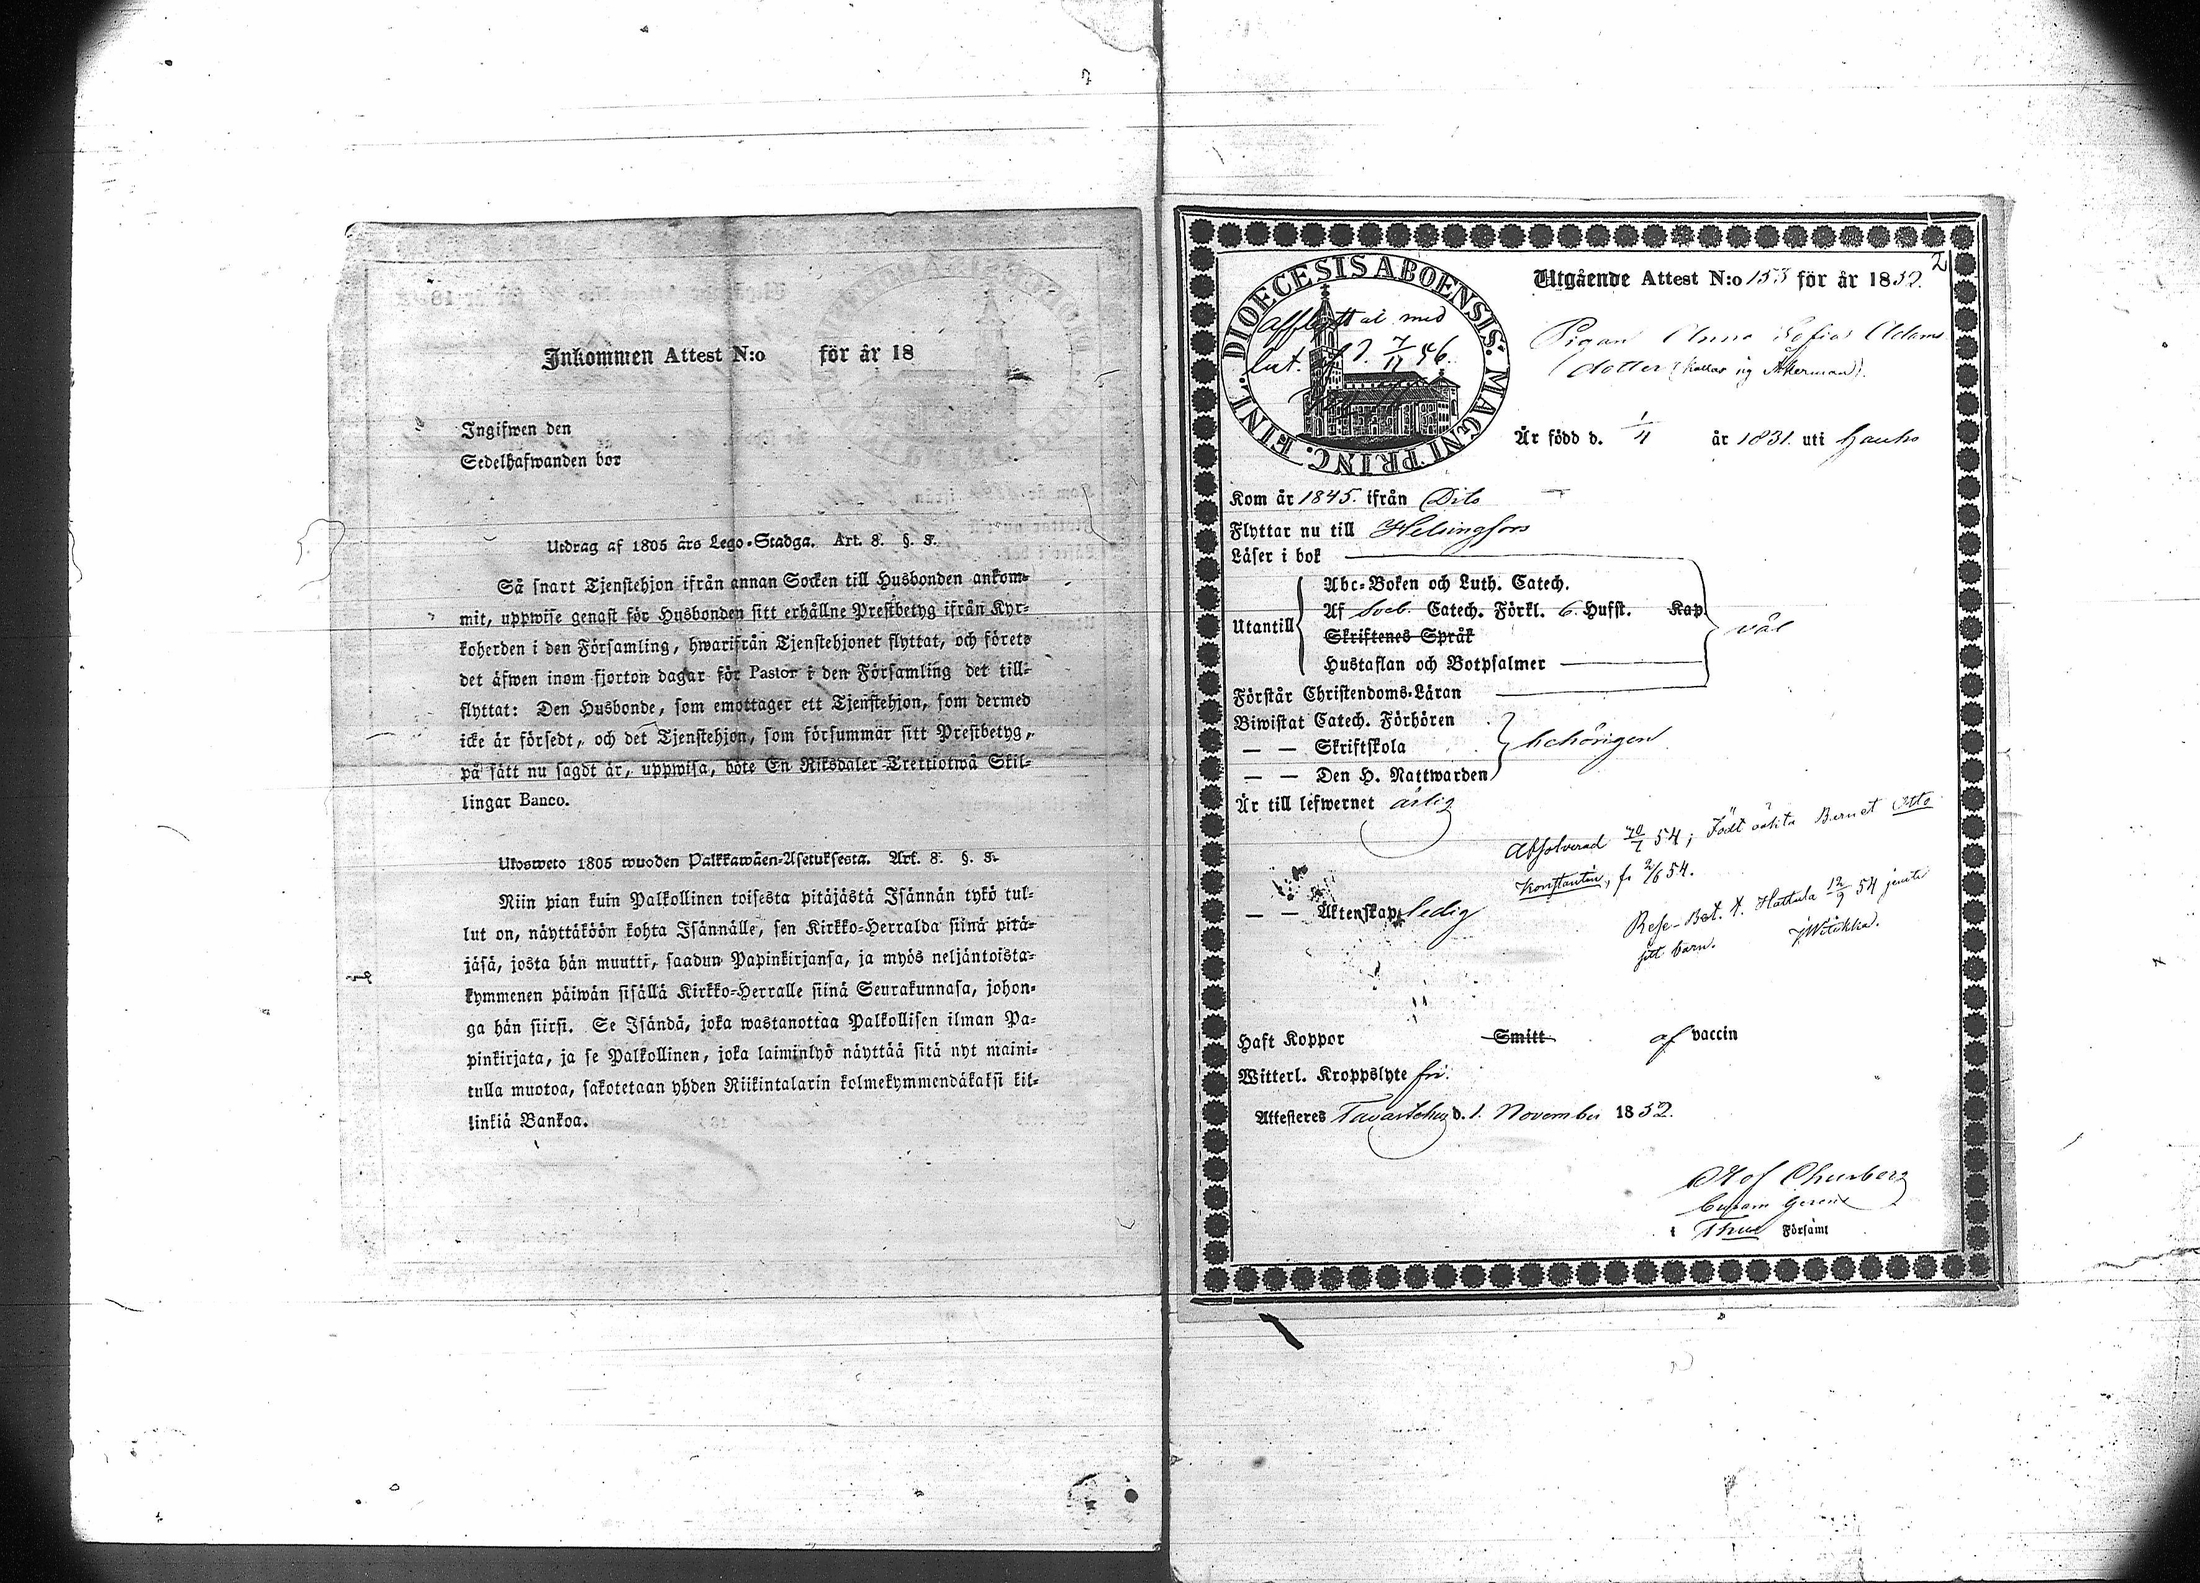 Inkommen Attest N:o för år 18
Ingifwen den
Sedelhafwanden bor
Utdrag af 1805 års Lego-Stadga. Art. 8. §. 8.
Så snart Tjenstehjon ifrån annan Socken till Husbonden ankom-
mit, uppwise genast för Husbonden sitt erhållne Prestbetyg ifrån Kyr-
koherden i den Församling, hwarifrån Tjenstehjonet flyttat, och förete
det äfwen inom fjorton dagar för Pastor i den Församling det till-
flyttat: Den Husbonde, som emottager ett Tjenstehjon, som dermed
icke är försedt, och det Tjenstehjon, som försummar sitt Prestbetyg,
på sätt nu sagdt är, uppwisa, böte En Riksdaler Trettiotwå Skil-
lingar Banco.
Ulosweto 1805 wuoden Palkkawäen-Asetuksesta. Art. 8. §. 8.
Niin pian kuin Palkollinen toisesta pitäjästä Isännän tykö tul-
lut on, näyttäköön kohta Isännälle, sen Kirkko-Herralda siinä pitä-
jäsä, josta hän muutti, saadun Papinkirjansa, ja myös neljäntoista-
kymmenen päiwän sisällä Kirkko-Herralle siinä Seurakunnasa, johon-
ga hän siirsi. Se Isändä, joka wastanottaa Palkollisen ilman Pa-
pinkirjata, ja se Palkollinen, joka laiminlyö näyttää sitä nyt maini-
tulla muotoa, sakotetaan yhden Riikintalarin kolmekymmendäkaksi kil-
linkiä Bankoa.
2
DIOECESIS ABOENSIS. MAGNI PRINC. FINL.
Afflyttat med
7/11 56.
Utgående Attest N:o 153 för år 1852.
Pigan Anna Sofia Adams
dotter (kallar sig Åkerman).
Är född d. 1/4 år 1831. uti Hauho
Kom år 1845. ifrån Dito
Flyttar nu till Helsingfors
Läser i bok
Abc-Boken och Luth. Catech.
Utantill Af Sveb. Catech. Förkl. 6. Husst. Kap
Skriftenes Språk
Hustaflan och Botpsalmer
väl
Förstår Christendoms-Läran
Biwistat Catech. Förhören
— — Skriftskola
— — Den H. Nattwarden
behörigen
Är till lefwernet ärlig
Absolverad 54; Födt oäkta Barnet Otto
Konstantin, 2/6 54.
— — Äktenskap ledig
Rese-Bet. t. Hattula 12/9 54 jemte
sitt barn.
Haft Koppor Smitt af vaccin
Witterl. Kroppslyte fri.
Attesteras Tavastehus d. 1. November 1852.
Olof Churberg
Curam Gerens
i Thus Försåmt